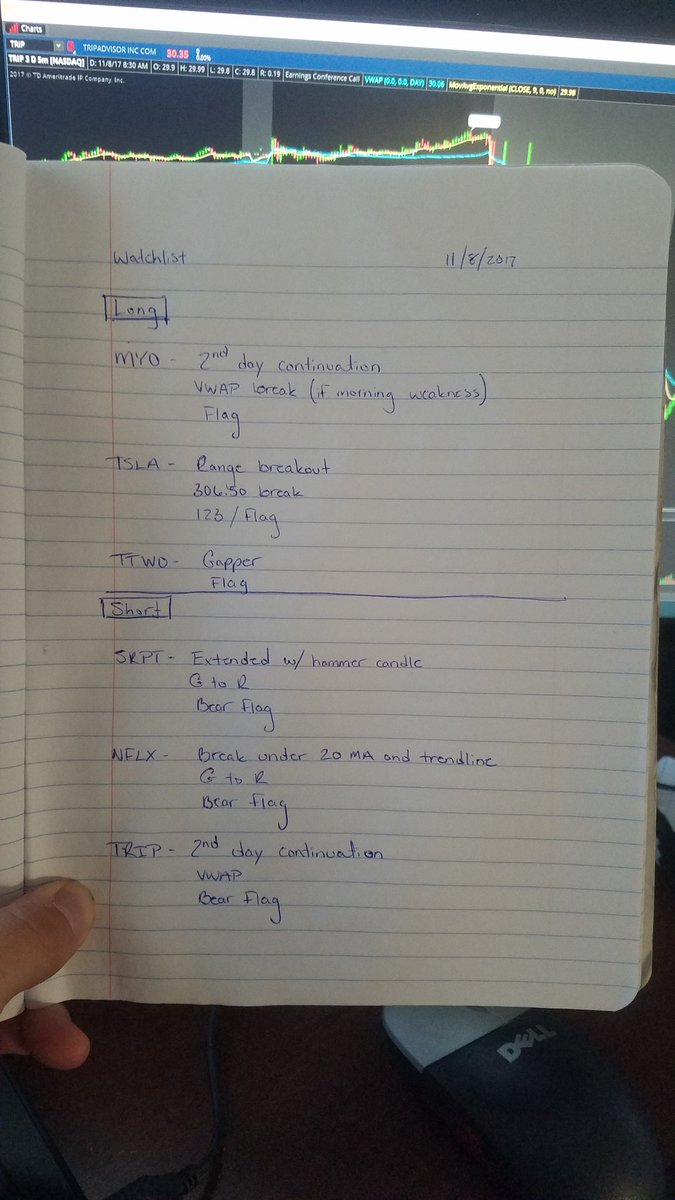 Charts
TRIP TRIPADVISOR INC COM 30.35 0 0.00%
TRIP 3 D 5m [NASDAQ] D: 11/8/17 8:30 AM O: 29.9 H: 29.99 L: 29.8 C: 29.8 R: 0.19 Earnings Conference Call VWAP (0.0, 0.0, DAY) 30.06 MovAvgExponential (CLOSE, 9, 0, no) 29.98
2017 © TD Ameritrade IP Company, Inc.
Watchlist 11/8/2017
Long
MYO - 2nd day continuation
VWAP break (if morning weakness)
Flag
TSLA - Range breakout
306.50 break
123 / Flag
TTWO - Gapper
Flag
Short
SRPT - Extended w/ hammer candle
G to R
Bear Flag
NFLX - Break under 20 MA and trendline
G to R
Bear Flag
TRIP - 2nd day continuation
VWAP
Bear Flag
DELL